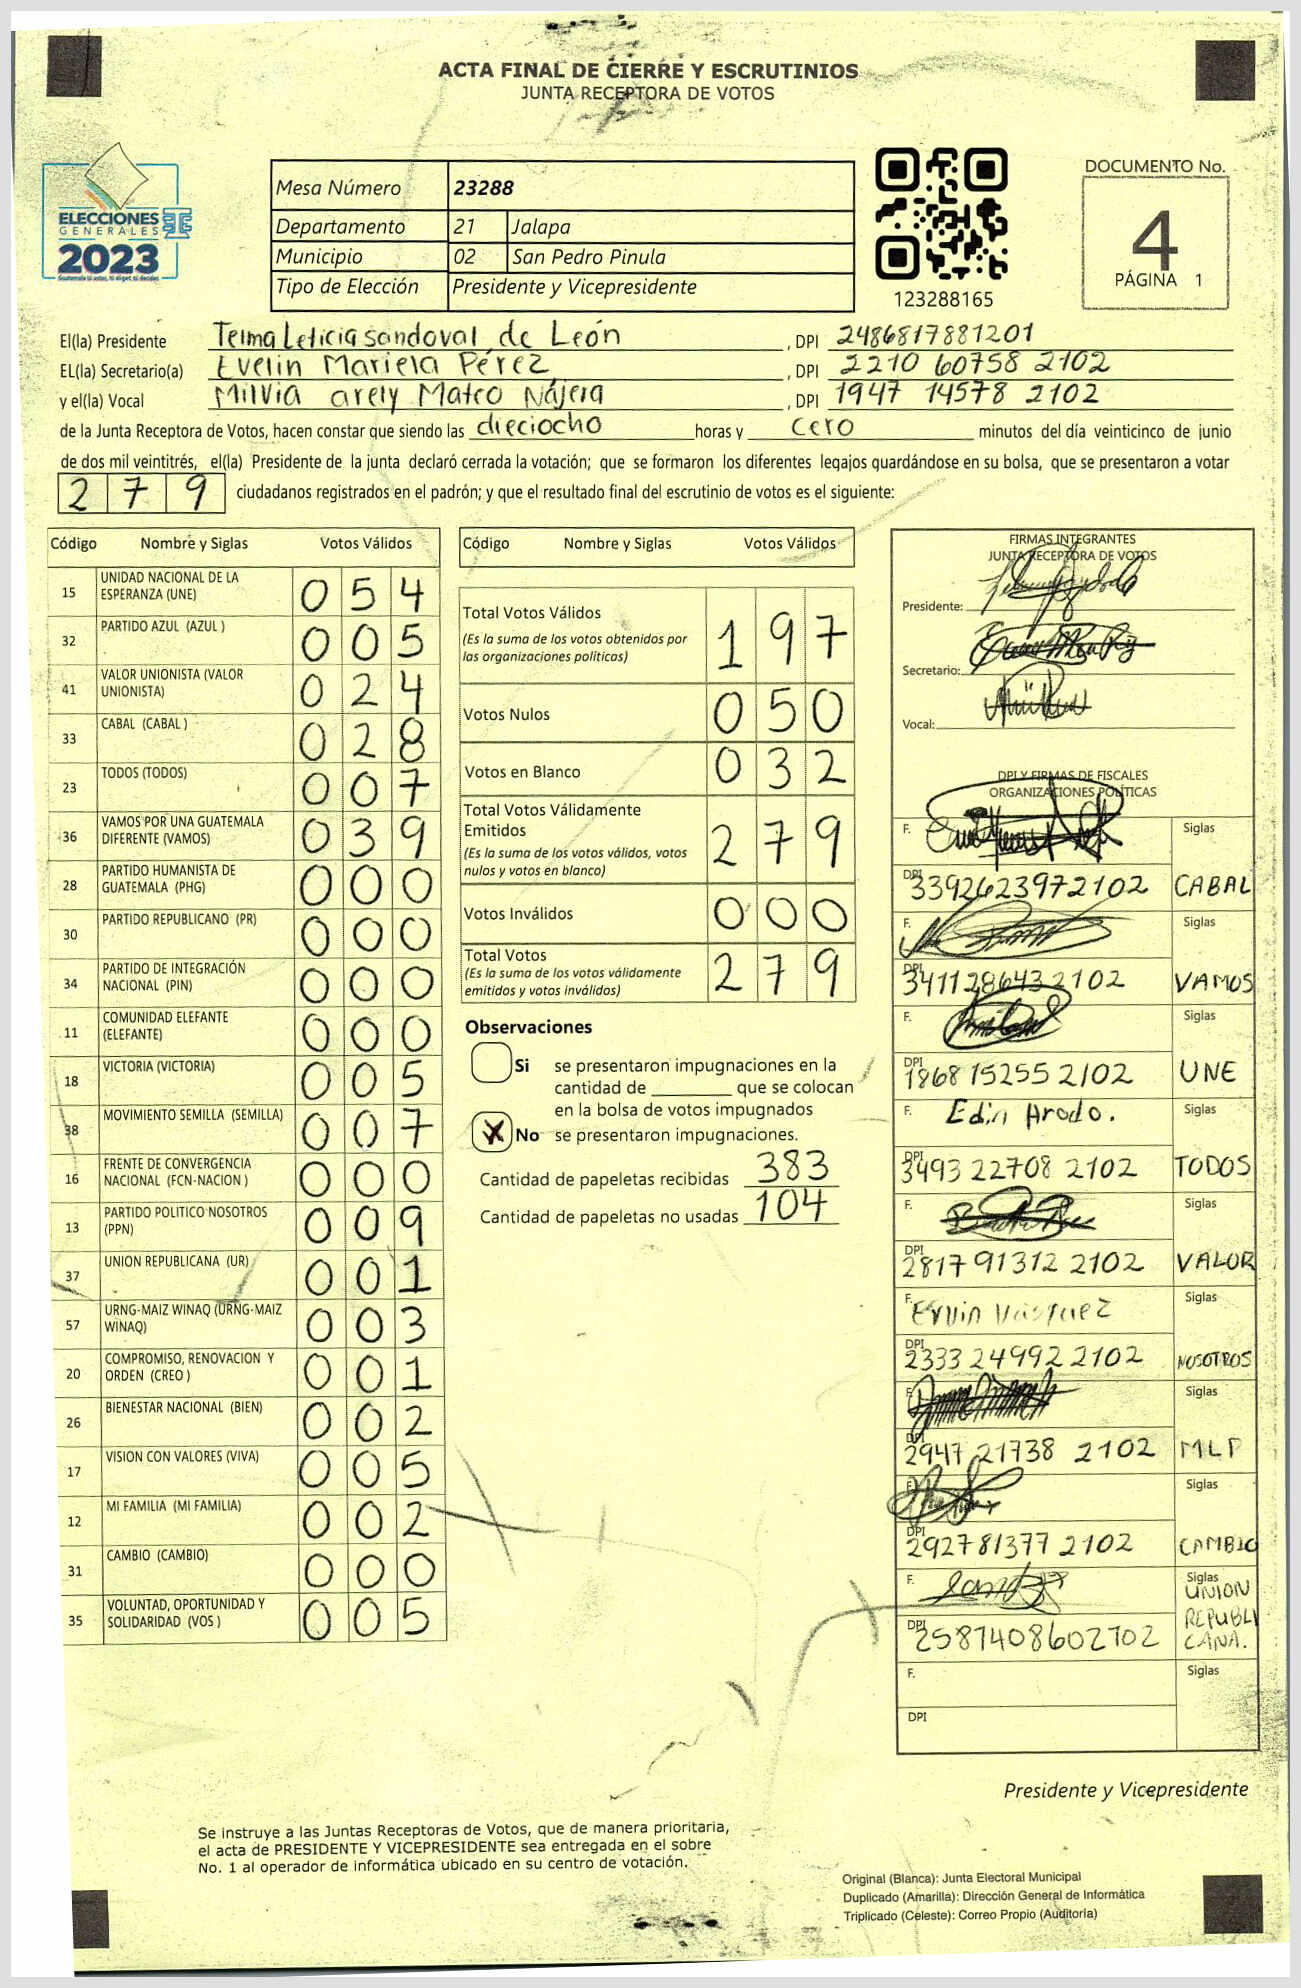 ACTA FINAL DE CIERRE Y ESCRUTINIOS
JUNTA RECEPTORA DE VOTOS
ELECCIONES
GENERALES
2023
Mesa Número 23288
Departamento 21 Jalapa
Municipio 02 San Pedro Pinula
Tipo de Elección Presidente y Vicepresidente
123288165
DOCUMENTO No.
4
PÁGINA 1
El(la) Presidente Telma Leticia sandoval de León , DPI 2486817881201
EL(la) Secretario(a) Evelin Mariela Pérez , DPI 2210 60758 2102
y el(la) Vocal Milvia arely Mateo Nájera , DPI 1947 14578 2102
de la Junta Receptora de Votos, hacen constar que siendo las dieciocho horas y cero minutos del día veinticinco de junio
de dos mil veintitrés, el(la) Presidente de la junta declaró cerrada la votación; que se formaron los diferentes legajos guardándose en su bolsa, que se presentaron a votar
279 ciudadanos registrados en el padrón; y que el resultado final del escrutinio de votos es el siguiente:
Código Nombre y Siglas Votos Válidos
15 UNIDAD NACIONAL DE LA ESPERANZA (UNE) 054
32 PARTIDO AZUL (AZUL ) 005
41 VALOR UNIONISTA (VALOR UNIONISTA) 024
33 CABAL (CABAL ) 028
23 TODOS (TODOS) 007
36 VAMOS POR UNA GUATEMALA DIFERENTE (VAMOS) 039
28 PARTIDO HUMANISTA DE GUATEMALA (PHG) 000
30 PARTIDO REPUBLICANO (PR) 000
34 PARTIDO DE INTEGRACIÓN NACIONAL (PIN) 000
11 COMUNIDAD ELEFANTE (ELEFANTE) 000
18 VICTORIA (VICTORIA) 005
38 MOVIMIENTO SEMILLA (SEMILLA) 007
16 FRENTE DE CONVERGENCIA NACIONAL (FCN-NACION ) 000
13 PARTIDO POLITICO NOSOTROS (PPN) 009
37 UNION REPUBLICANA (UR) 001
57 URNG-MAIZ WINAQ (URNG-MAIZ WINAQ) 003
20 COMPROMISO, RENOVACION Y ORDEN (CREO ) 001
26 BIENESTAR NACIONAL (BIEN) 002
17 VISION CON VALORES (VIVA) 005
12 MI FAMILIA (MI FAMILIA) 002
31 CAMBIO (CAMBIO) 000
35 VOLUNTAD, OPORTUNIDAD Y SOLIDARIDAD (VOS ) 005
Código Nombre y Siglas Votos Válidos
Total Votos Válidos 197
(Es la suma de los votos obtenidos por
las organizaciones políticas)
Votos Nulos 050
Votos en Blanco 032
Total Votos Válidamente
Emitidos 279
(Es la suma de los votos válidos, votos
nulos y votos en blanco)
Votos Inválidos 000
Total Votos 279
(Es la suma de los votos válidamente
emitidos y votos inválidos)
Observaciones
Si se presentaron impugnaciones en la
cantidad de ________ que se colocan
en la bolsa de votos impugnados
X No se presentaron impugnaciones.
Cantidad de papeletas recibidas 383
Cantidad de papeletas no usadas 104
FIRMAS INTEGRANTES
JUNTA RECEPTORA DE VOTOS
Presidente:
Secretario:
Vocal:
DPI Y FIRMAS DE FISCALES
ORGANIZACIONES POLÍTICAS
F. Siglas
DPI 3392623972102 CABAL
F. Siglas
DPI 3411286432102 VAMOS
F. Siglas
DPI 1868 15255 2102 UNE
F. Edin Arodo. Siglas
DPI 3493 22708 2102 TODOS
F. Siglas
DPI 2817 91312 2102 VALOR
F. Ervin Vasquez Siglas
DPI 2333 24992 2102 NOSOTROS
F. Siglas
DPI 2947 21738 2102 MLP
F. Siglas
DPI 2927 81377 2102 CAMBIO
F. Siglas
UNION
REPUBLI
CANA.
DPI 2587408602102
F. Siglas
DPI
Presidente y Vicepresidente
Se instruye a las Juntas Receptoras de Votos, que de manera prioritaria,
el acta de PRESIDENTE Y VICEPRESIDENTE sea entregada en el sobre
No. 1 al operador de informática ubicado en su centro de votación.
Original (Blanca): Junta Electoral Municipal
Duplicado (Amarilla): Dirección General de Informática
Triplicado (Celeste): Correo Propio (Auditoria)